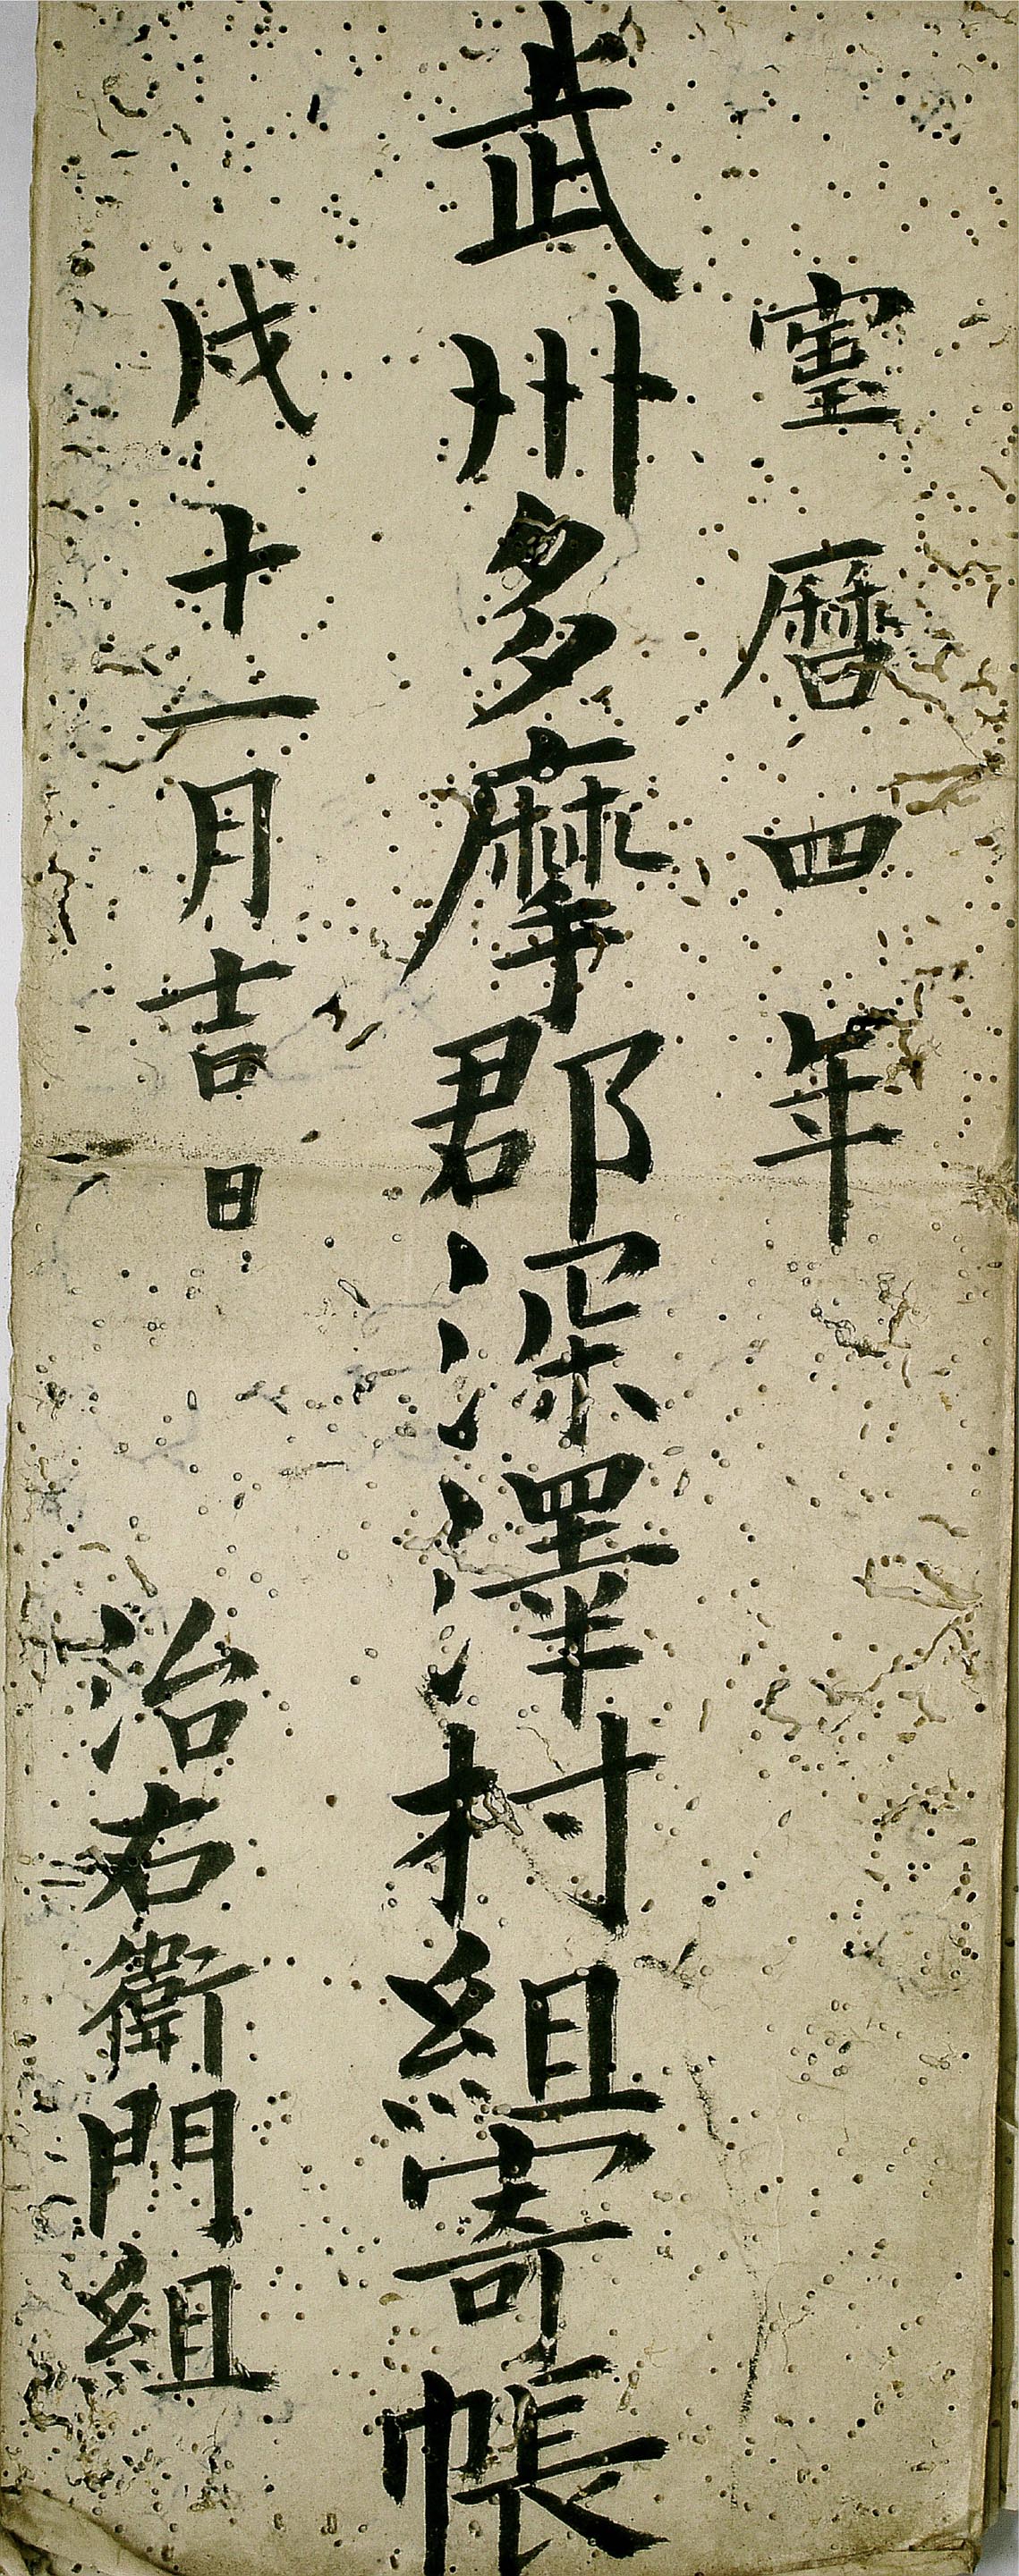 寳曆四年
武州多摩郡深澤村組寄帳
戌十一月吉日
治右衛門組